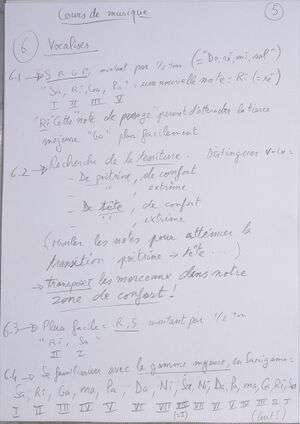 Cours de musique
5
6 Vocalises.
6.1 → S R G P montant par 1/2 ton (= "Do, ré, mi, sol")
"Sa, Ri, Ga, Pa" : une nouvelle note = Ri (= ré)
I II III V
"Ri" cette note de passage permet d'atteindre la tierce
majeure "Ga" plus facilement
6.2 → Recherche de la tessiture. Distinguer
- De poitrine, de confort
" , extrême
- De tête, de confort
" extrême
( les notes pour atténuer la
transition poitrine → tête ...)
→ transposer les morceaux dans notre
zone de confort !
6.3 → Plus facile = R, S montant par 1/2 ton
"Ri, Sa"
II I
6.4 → Se familiariser avec la gamme majeure, en Sarigama :
Sa, Ri, Ga, ma, Pa, Da, Ni, Sa, Ni, Da, Pa, ma, Ga, Ri, Sa
I II III IV V VI VII VIII VII VI V IV III II I
(= I)